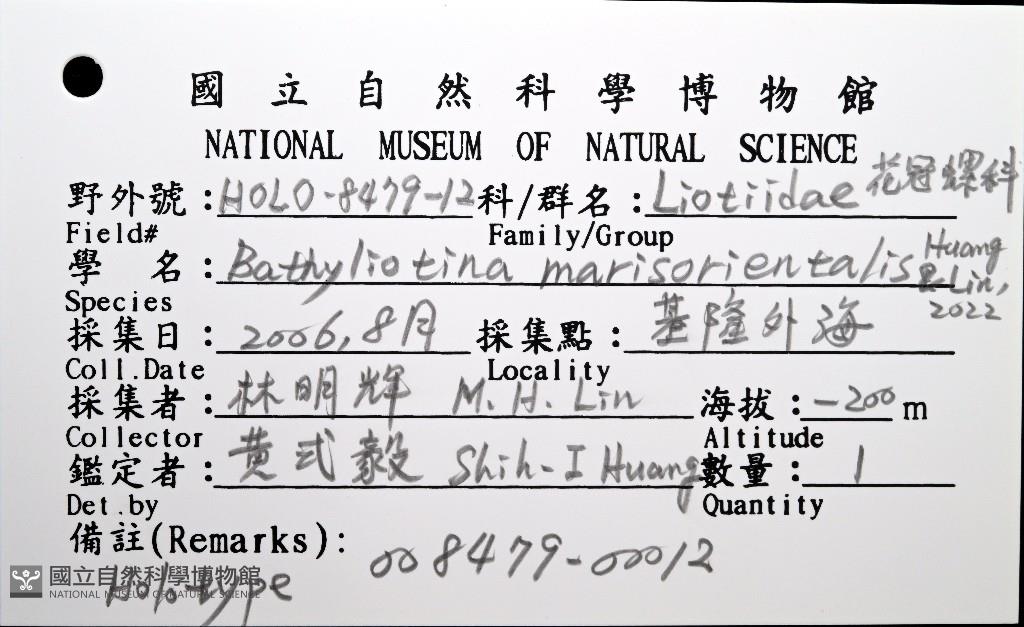 國立自然科學博物館
NATIONAL MUSEUM OF NATURAL SCIENCE
野外號:HOLO-8479-12 科/群名:Liotiidae 花冠螺科
Field# Family/Group
學 名:Bathyliotina marisorientalis Huang & Lin, 2022
Species
採集日:2006,8月 採集點:基隆外海
Coll.Date Locality
採集者:林明輝 M.H.Lin 海拔:-200m
Collector Altitude
鑑定者:黄式毅 Shih-I Huang 數量:1
Det.by Quantity
備註(Remarks): 008479-00012
Holotype
國立自然科學博物館
NATIONAL MUSEUM OF NATURAL SCIENCE